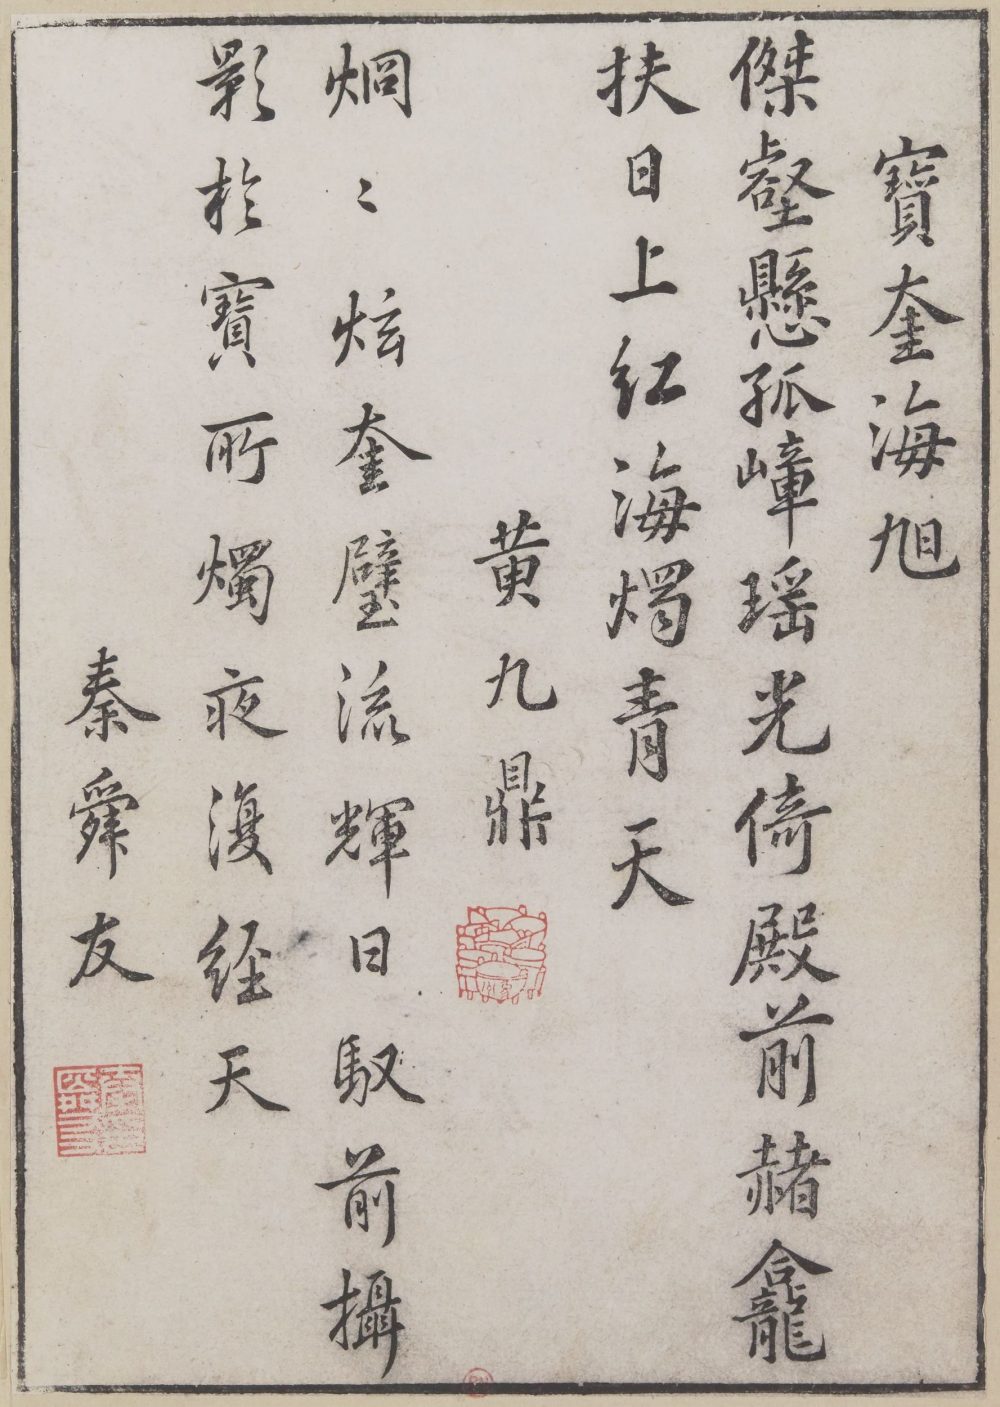 寶奎海旭
傑壑懸孤嶂瑶光倚殿前赭龕
扶日上紅海燭青天
黄九鼎
烱〻炫奎璧流輝日馭前攝
影於寶所燭夜復經天
秦舜友